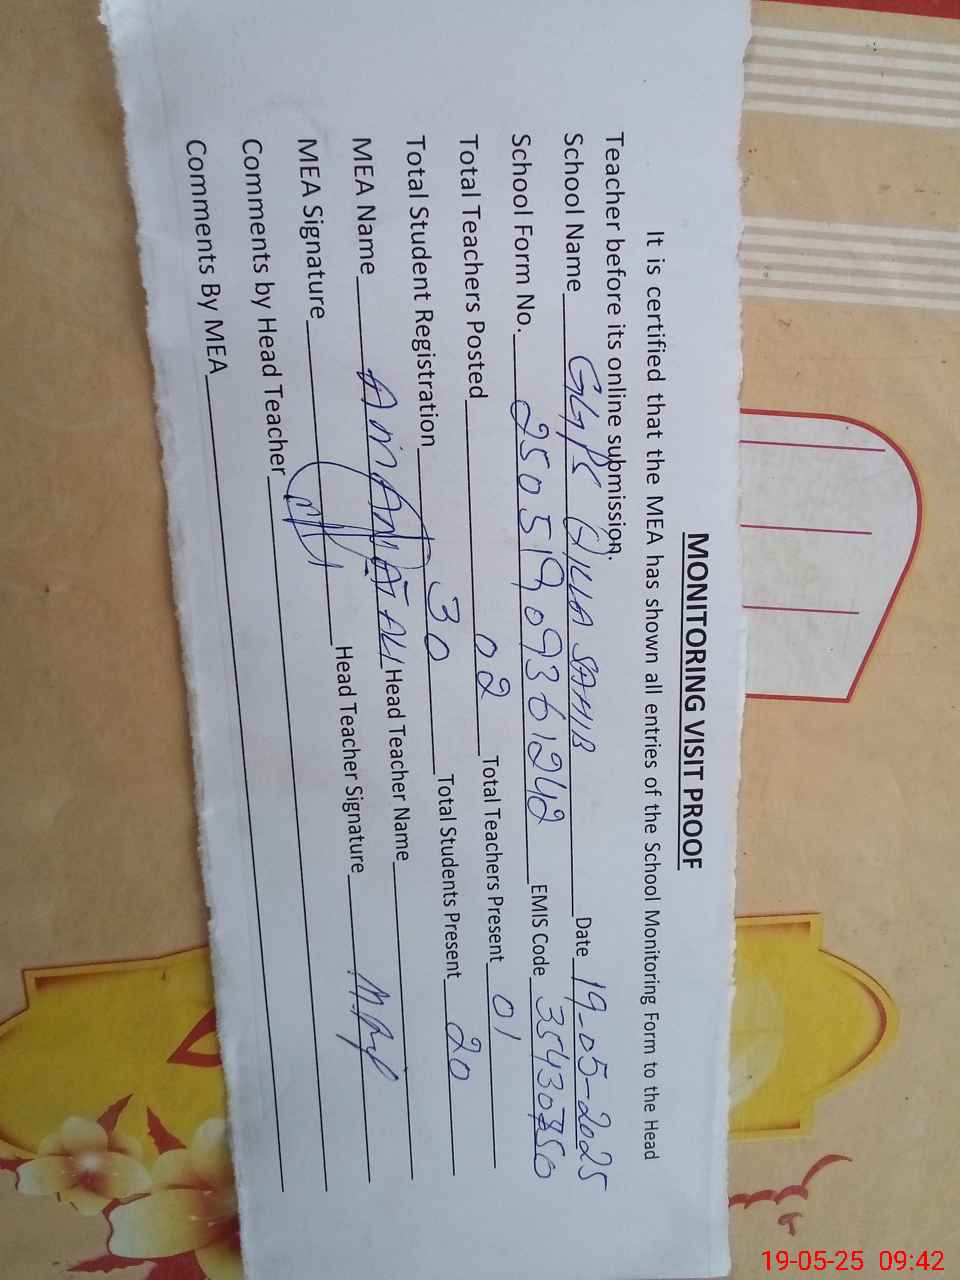 MONITORING VISIT PROOF
It is certified that the MEA has shown all entries of the School Monitoring Form to the Head
Teacher before its online submission.
School Name GGPS QILLA SAHIB Date 19-05-2025
School Form No. 25051909361242 EMIS Code 35430350
Total Teachers Posted 02 Total Teachers Present 01
Total Student Registration 30 Total Students Present 20
MEA Name ALI Head Teacher Name
MEA Signature Head Teacher Signature
Comments by Head Teacher
Comments By MEA
19-05-25 09:42